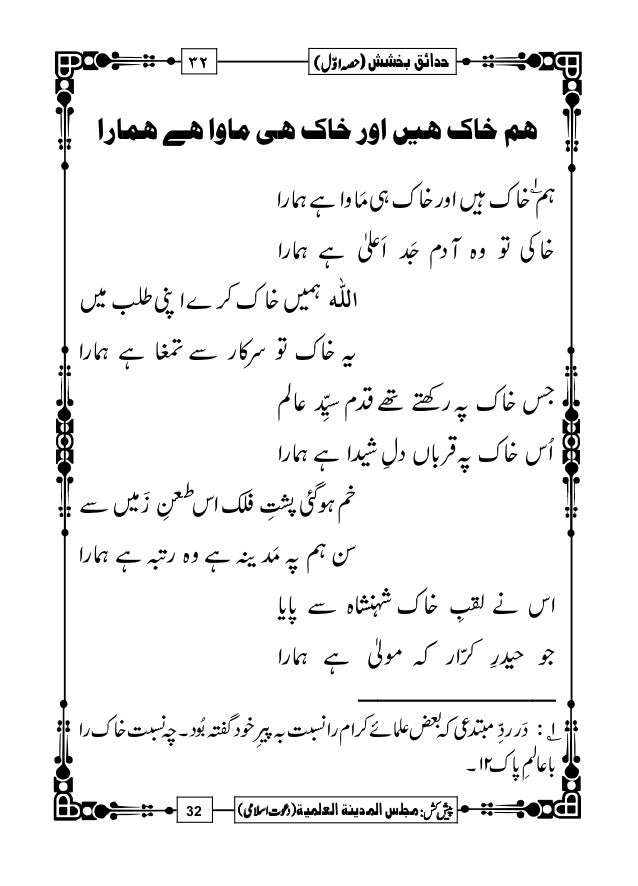 حدائقِ بخشش (حصہ اوّل)
۳۲
ھم خاک ھیں اور خاک ھی ماوا ھے ھمارا
ہم ۱؎ خاک ہیں اور خاک ہی مَاوا ہے ہمارا
خاکی تو وہ آدم جَد اَعلیٰ ہے ہمارا
اللہ ہمیں خاک کرے اپنی طلب میں
یہ خاک تو سرکار سے تمغا ہے ہمارا
جس خاک پہ رکھتے تھے قدم سیِّدِ عالم
اُس خاک پہ قرباں دلِ شیدا ہے ہمارا
خم ہوگئی پشتِ فلک اس طعنِ زَمیں سے
سن ہم پہ مَدینہ ہے وہ رتبہ ہے ہمارا
اس نے لقبِ خاک شہنشاہ سے پایا
جو حیدرِ کرّار کہ مولیٰ ہے ہمارا
۱؎ : دَر ردِّ مبتدعی کہ بعض علمائے کرام را نسبت بہ پیرِ خود گفتہ بُود۔ چہ نسبت خاک را
با عالمِ پاک ۱۲۔
پیش کش: مجلس المدینۃ العلمیۃ (دعوتِ اسلامی)
32